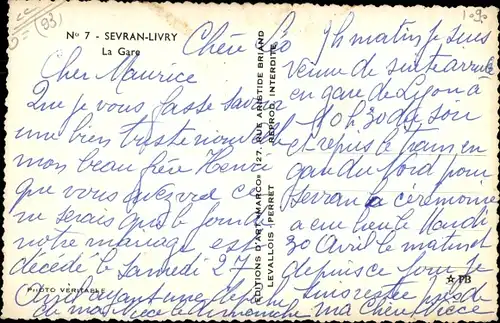 (93)
1.90
N° 7 - SEVRAN-LIVRY
La Gare
Chère Léo
Cher Maurice
Que je vous fasse savoir
une bien triste nouvelle
mon beau frère Henri
que vous
ne serais que le jour de
notre mariage est
décédé le Samedi 27
Avril ayant une dépêche
de ma nièce le dimanche
7h matin je suis
venue de suite arrivée
en gare de Lyon a
10h30 du soir
et repris le train en
gare du Nord pour
Sevran la cérémonie
a eu lieu le Mardi
30 Avril le matin et
depuis ce jour je
suis restée près de
ma chère nièce
EDITIONS D'ART «MARCO» 127, RUE ARISTIDE BRIAND
LEVALLOIS-PERRET REPROD. INTERDITE
PHOTO VERITABLE
FB